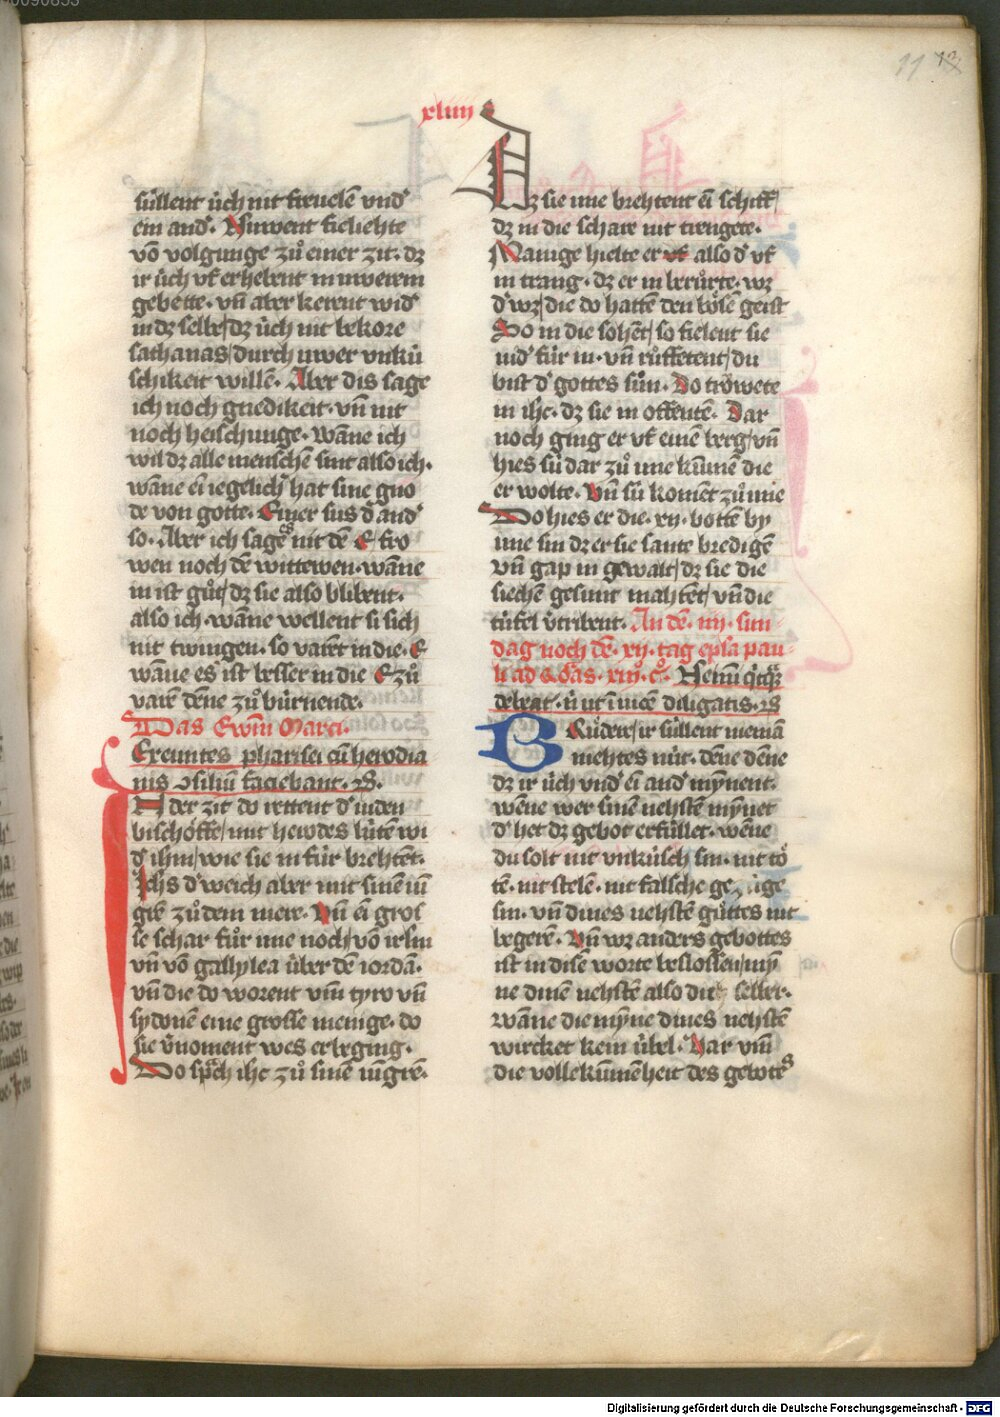 xliiij
süllent üch nit freuelē vnd'
ein and'. Nuwent fieliehte
vō volgunge zů einer zit. dz
ir üch vf erhebent in uwerem
gebette. vn̄ aber kerent wid'
in dz selbe/dz üch nit bekore
sathanas/durch uwer vnkü
schikeit willē. Aber dis sage
ich noch gnedikeit. vn̄ nit
noch heischunge. wāne ich
wil dz alle menschē sint also ich.
wāne eī iegelich' hat sine gno
de von gotte. Einer sus d' and'
so. Aber ich sagē nit dē E fro
wen noch dē wittewen. wāne
in ist gůt/dz sie also blibent.
also ich. wāne wellent si sich
nit twingen. so varēt in die. E
wāne es ist besser in die E zů
varē dēne zů bürnende.
Das Ewm̄ Marci.
Exeuntes pharisei cū herodia
nis ɔsiliū faciebant. Rß.
IN der zit do rettent d' iuden
bischöffe/mit herodes lütē wi
d' ihm/wie sie in für brehtēt.
Ihs d' weich aber mit sinē iū
grē zů dem mere. Vn̄ eī gros
se schar fůr ime noch/vō irlm
vn̄ vō gallylea über dē iordā.
vn̄ die do worent vm̄ tyro vn̄
sydonē eine grosse menige. do
sie v'noment wes er beging.
Do sp̄ch ihc zů sinē iūgrē.
Dz sie ime brehtent eī schiff/
dz in die schare nit trengete.
Manige hielte er also d' vf
in trang. dz er in berůrte. wz
d' wz/die do hattē den bösē geist
So in die sohēt/so fielent sie
nid' für in. vn̄ růffetent/du
bist d' gottes sün. Do trowete
in ihc. dz sie in offentē. Dar
noch ging er vf einē berg/vn̄
hies sü dar zů ime kūmē die
er wolte. Vn̄ sü komēt zů ime
Do hies er die. xij. bottē by
ime sin dz er sie sante bredigē
vn̄ gap in gewalt/dz sie die
siechen gesunt mahtēt/vn̄ die
tüfel v'tribent. An dē. iiij. sun
dag noch dē. xij. tag epl̄a pau
li ad Ro̅as. xiij. c°. Nemi q̊cq̊
debeat. n̄ ut īuicē diligatis. Rß
BRüdere/ir süllent niemā
niehtes nüt. dēne dēne
dz ir üch vnd' eī and' mȳnent.
wēne wer sinē nehstē mȳnet
d' het dz gebot erfüllet. wēne
du solt nit vnküsch sin. nit tö
tē. nit stelē. nit falsche gezüge
sin. vn̄ dines nehstē gůttes nit
begerē. Vn̄ wz anders gebottes
ist in disē worte beslossen/mȳ
ne dinē nehstē also dich selber.
Wāne die mȳne dines nehstē
wircket kein übel. Dar vm̄
die vollekūmēheit des gebotes
Digitalisierung gefördert durch die Deutsche Forschungsgemeinschaft - DFG